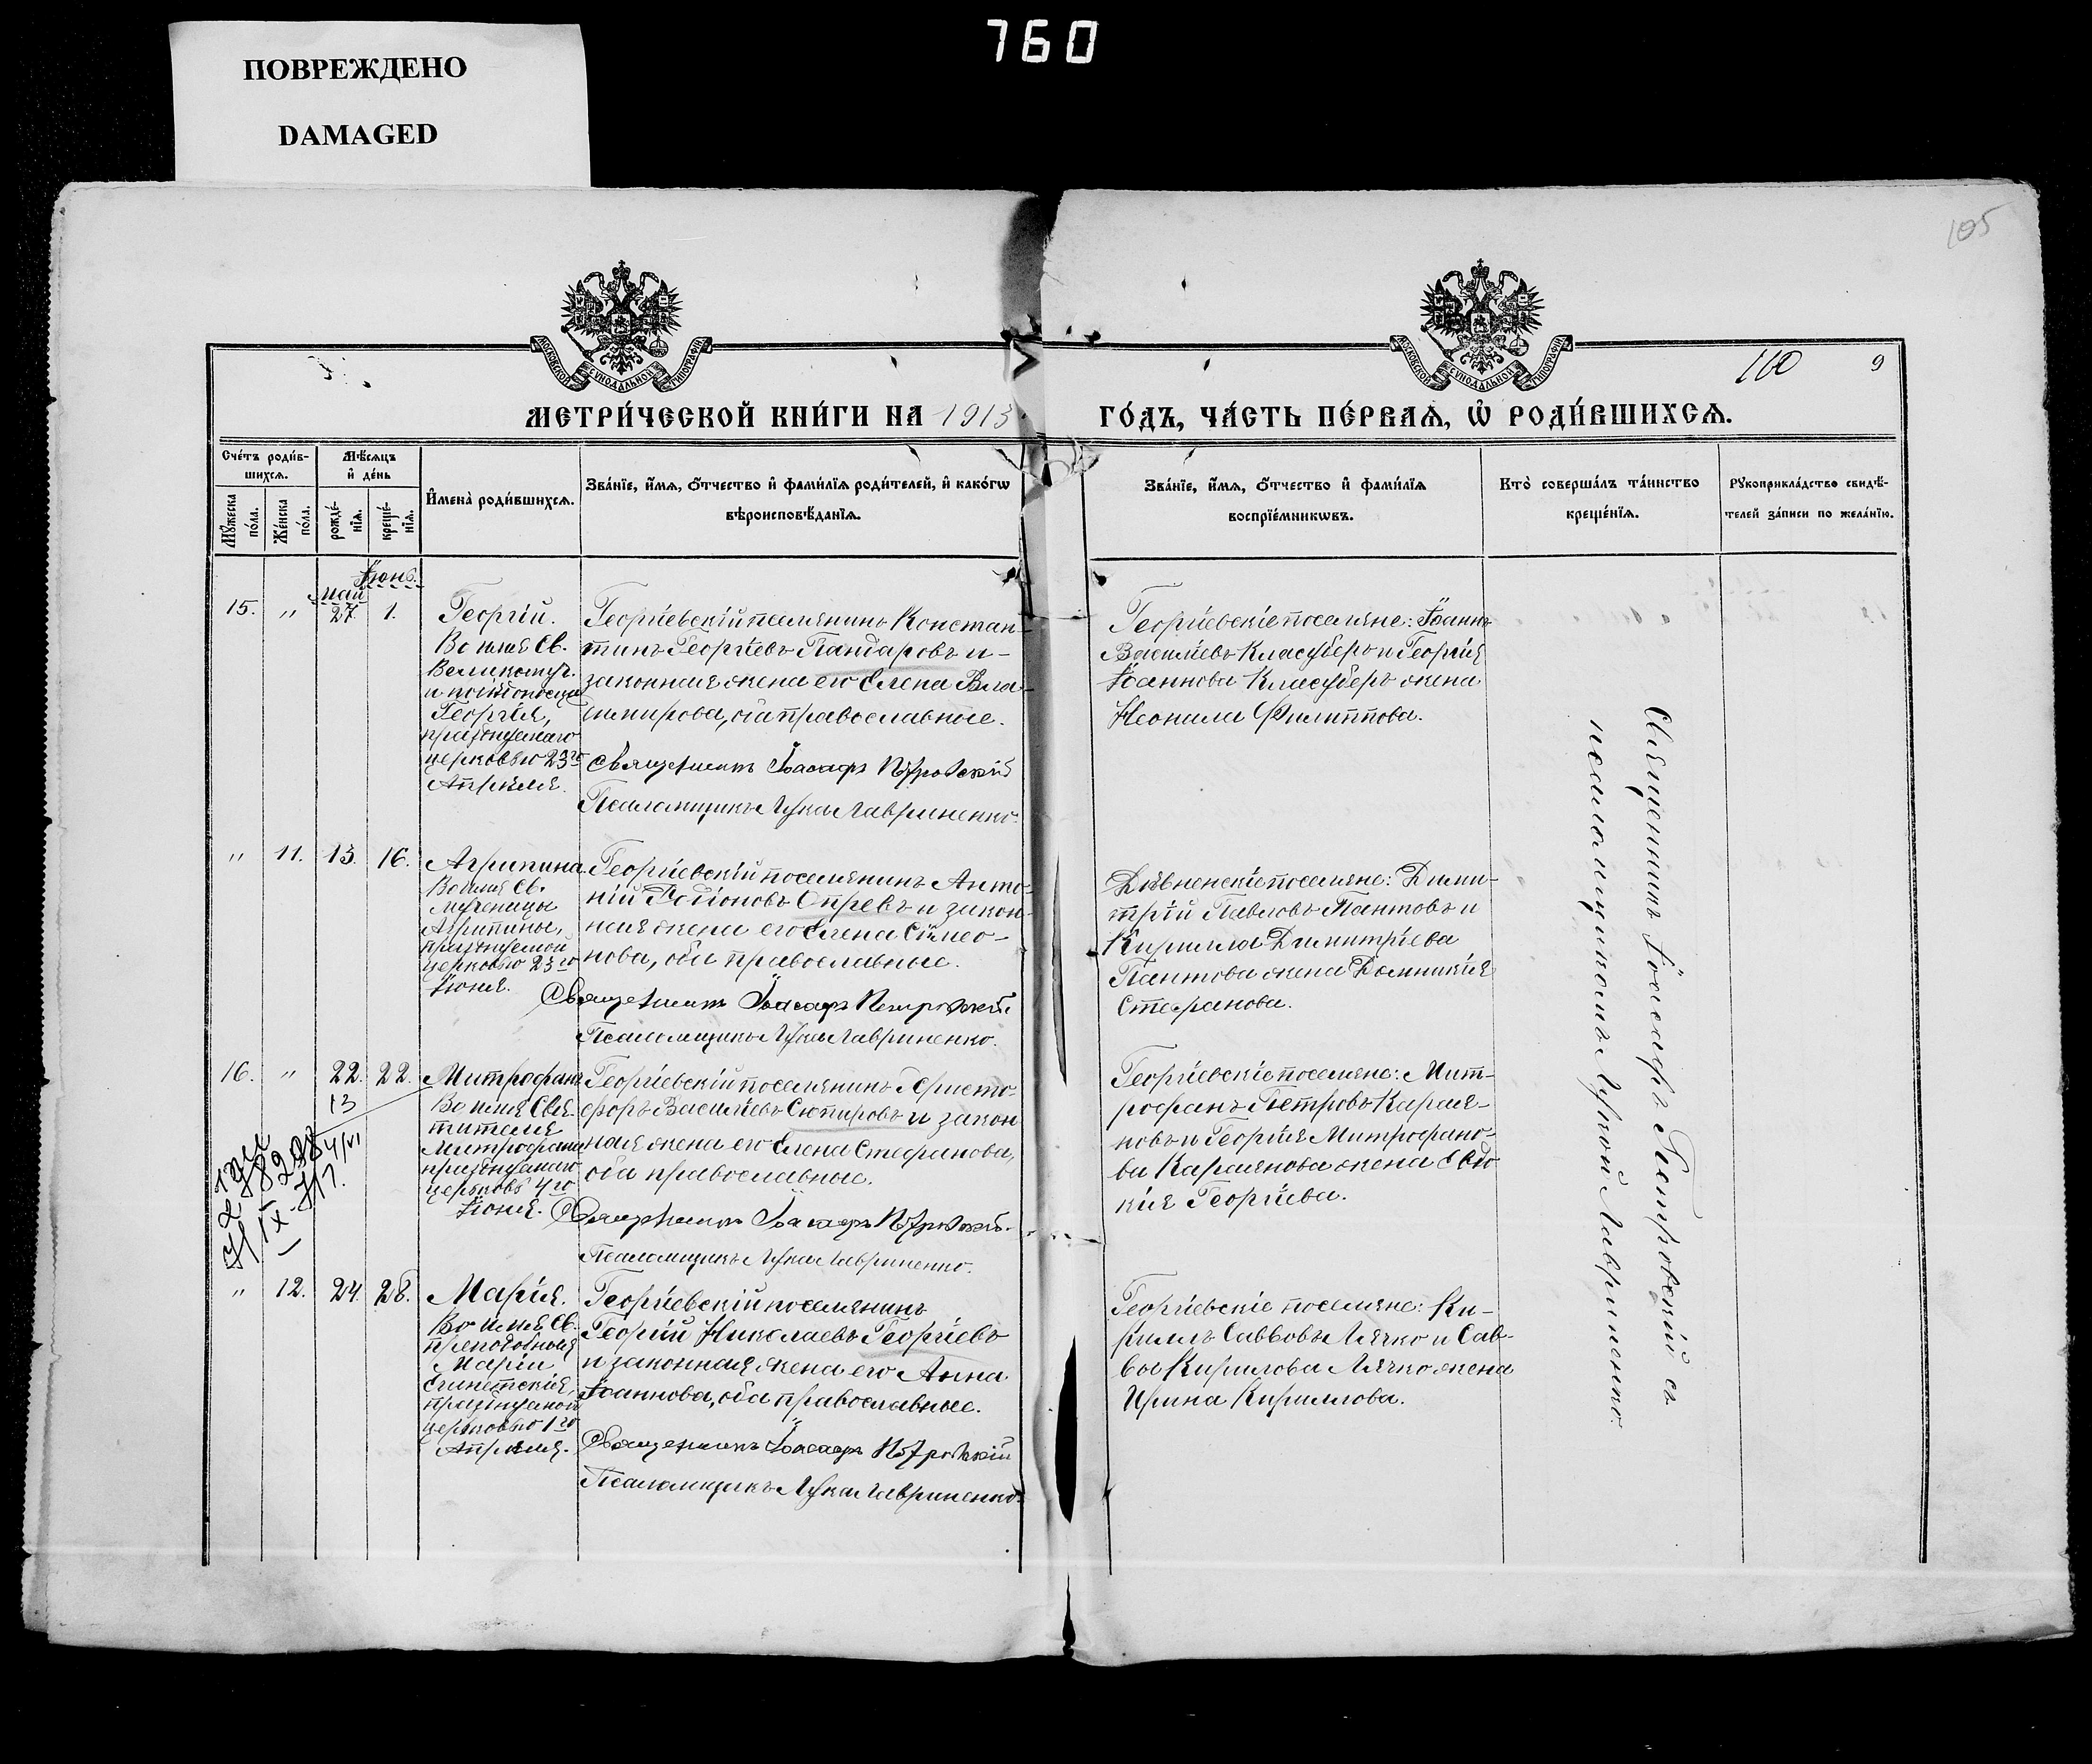 760
ПОВРЕЖДЕНО
DAMAGED
105
МОСКОВСКОЙ СѴНОДАЛЬНОЙ ТИПОГРАФІИ
МОСКОВСКОЙ СѴНОДАЛЬНОЙ ТИПОГРАФІИ
110
9
МЕТРИ́ЧЕСКОЙ КНИ́ГИ НА 1913
ГО́ДЪ, ЧА́СТЬ ПЕ́РВАѦ, Ѡ҆ РОДИ́ВШИХСѦ.
Сче́тъ роди́в-
шихсѧ.
Мꙋ́жеска
по́ла.
Же́нска
по́ла.
Мѣ́сѧцъ
и҆ де́нь
рожде́-
нїѧ.
креще́-
нїѧ.
И҆мена̀ роди́вшихсѧ.
Зва́нїе, и҆́мѧ, ѻ҆́тчество и҆ фами́лїѧ роди́телей, и҆ како́гѡ
вѣроисповѣ́данїѧ.
Зва́нїе, и҆́мѧ, ѻ҆́тчество и҆ фами́лїѧ
воспрїе́мникѡвъ.
Кто̀ соверша́лъ та́инство
креще́нїѧ.
Рꙋкоприкла́дство свидѣ́-
телей за́писи по жела́нїю.
Май
Іюнь.
15. " 27. 1.
Георгій.
Во имя Св.
Великомуч.
и побѣдоносца
Георгія,
празднуемаго
церковью 23го
Апрѣля.
Георгіевскій поселянинъ Констан-
тинъ Георгіевъ Пандаровъ и
законная жена его Елена Вла-
димирова, оба православные.
Священникъ Іоасафъ Петровскій
Псаломщикъ Лука Лавриненко.
Георгіевскіе поселяне: Іоаннъ
Василіевъ Класуберъ и Георгія
Іоаннова Класуберъ жена
Неонила Филиппова.
" 11. 13. 16.
Агрипина.
Во имя Св.
Мученицы
Агрипины,
празднуемой
церковью 23го
Іюня.
Георгіевскій поселянинъ Анто-
ній Родіоновъ Опревъ и закон-
ная жена его Елена Сімео-
нова, оба православные.
Священникъ Іоасафъ Петровскій
Псаломщикъ Лука Лавриненко.
Дивненскіе поселяне: Дими-
трій Павловъ Пантовъ и
Кирилла Димитріева
Пантова жена Домникія
Стефанова.
16. " 22. 22.
13
Митрофанъ
Во имя Свя-
тителя
Митрофана
празднуемаго
церковью 4го
Іюня.
Георгіевскій поселянинъ Христо-
форъ Василіевъ Сютировъ и закон
ная жена его Елена Стефанова,
оба православные.
Священникъ Іоасафъ Петровскій.
Псаломщикъ Лука Лавриненко.
Георгіевскіе поселяне: Мит-
рофанъ Петровъ Карая-
новъ и Георгія Митрофано-
ва Караянова жена Евдо
кія Георгіева.
" 12. 24. 28.
Марія.
Во имя Св.
преподобной
Маріи
Египетскія,
празднуемой
церковью 1го
Апрѣля.
Георгіевскій поселянинъ
Георгій Николаевъ Георгіевъ
и законная жена его Анна
Іоаннова, оба православные.
Священникъ Іоасафъ Петровскій
Псаломщикъ Лука Лавриненко.
Георгіевскіе поселяне: Ки-
риллъ Саввовъ Лячко и Сав-
вы Кирилова Лячко жена
Ирина Кириллова.
Священникъ Іоасафъ Петровскій съ
псаломщикомъ Лукой Лавриненко.